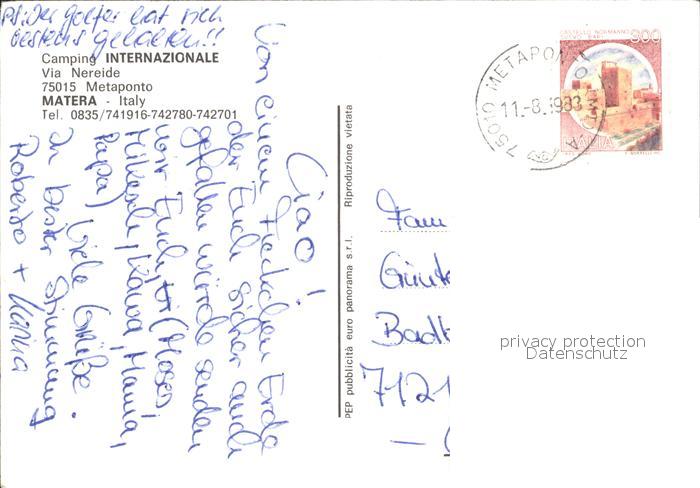 PS: Der Golfer hat sich
bestens gehalten!!
Camping INTERNAZIONALE
Via Nereide
75015 Metaponto
MATERA - Italy
Tel. 0835/741916-742780-742701
Ciao!
Von einem Fleckchen Erde
der Euch sicher auch
gefallen würde senden
wir Euch (Moses,
Mama,
Papa) viele Grüße.
In bester Stimmung
Roberto + 
PEP pubblicità euro panorama s.r.l. Riproduzione vietata
CASTELLO NORMANNO
SVEVO BARI
300
ITALIA
75010 METAPONTO
11.-8.1983
Fam
Günte
Bad
712
privacy protection
Datenschutz